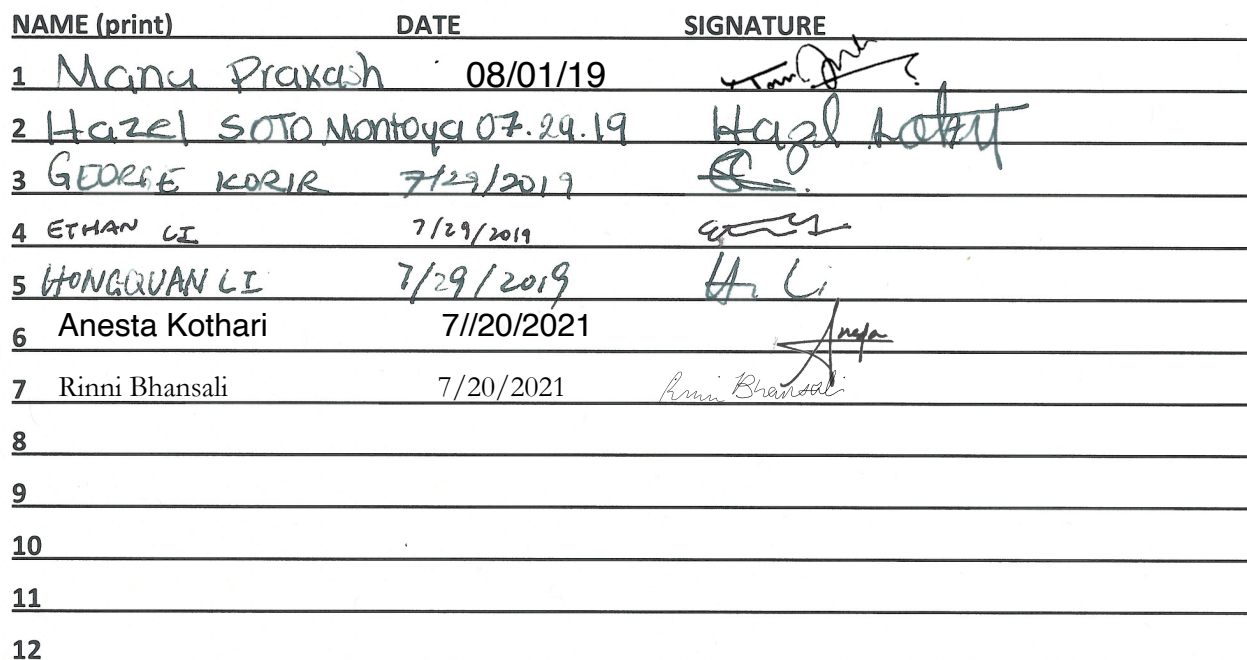 NAME (print) DATE SIGNATURE
1 Manu Prakash 08/01/19
2 Hazel SOTO Montoya 07.29.19 Hazel
3 GEORGE KORIR 7/29/2019
4 ETHAN LI 7/29/2019
5 HONGQUAN LI 7/29/2019 H. Li
6 Anesta Kothari 7//20/2021
7 Rinni Bhansali 7/20/2021 Rinni Bhansali
8
9
10
11
12